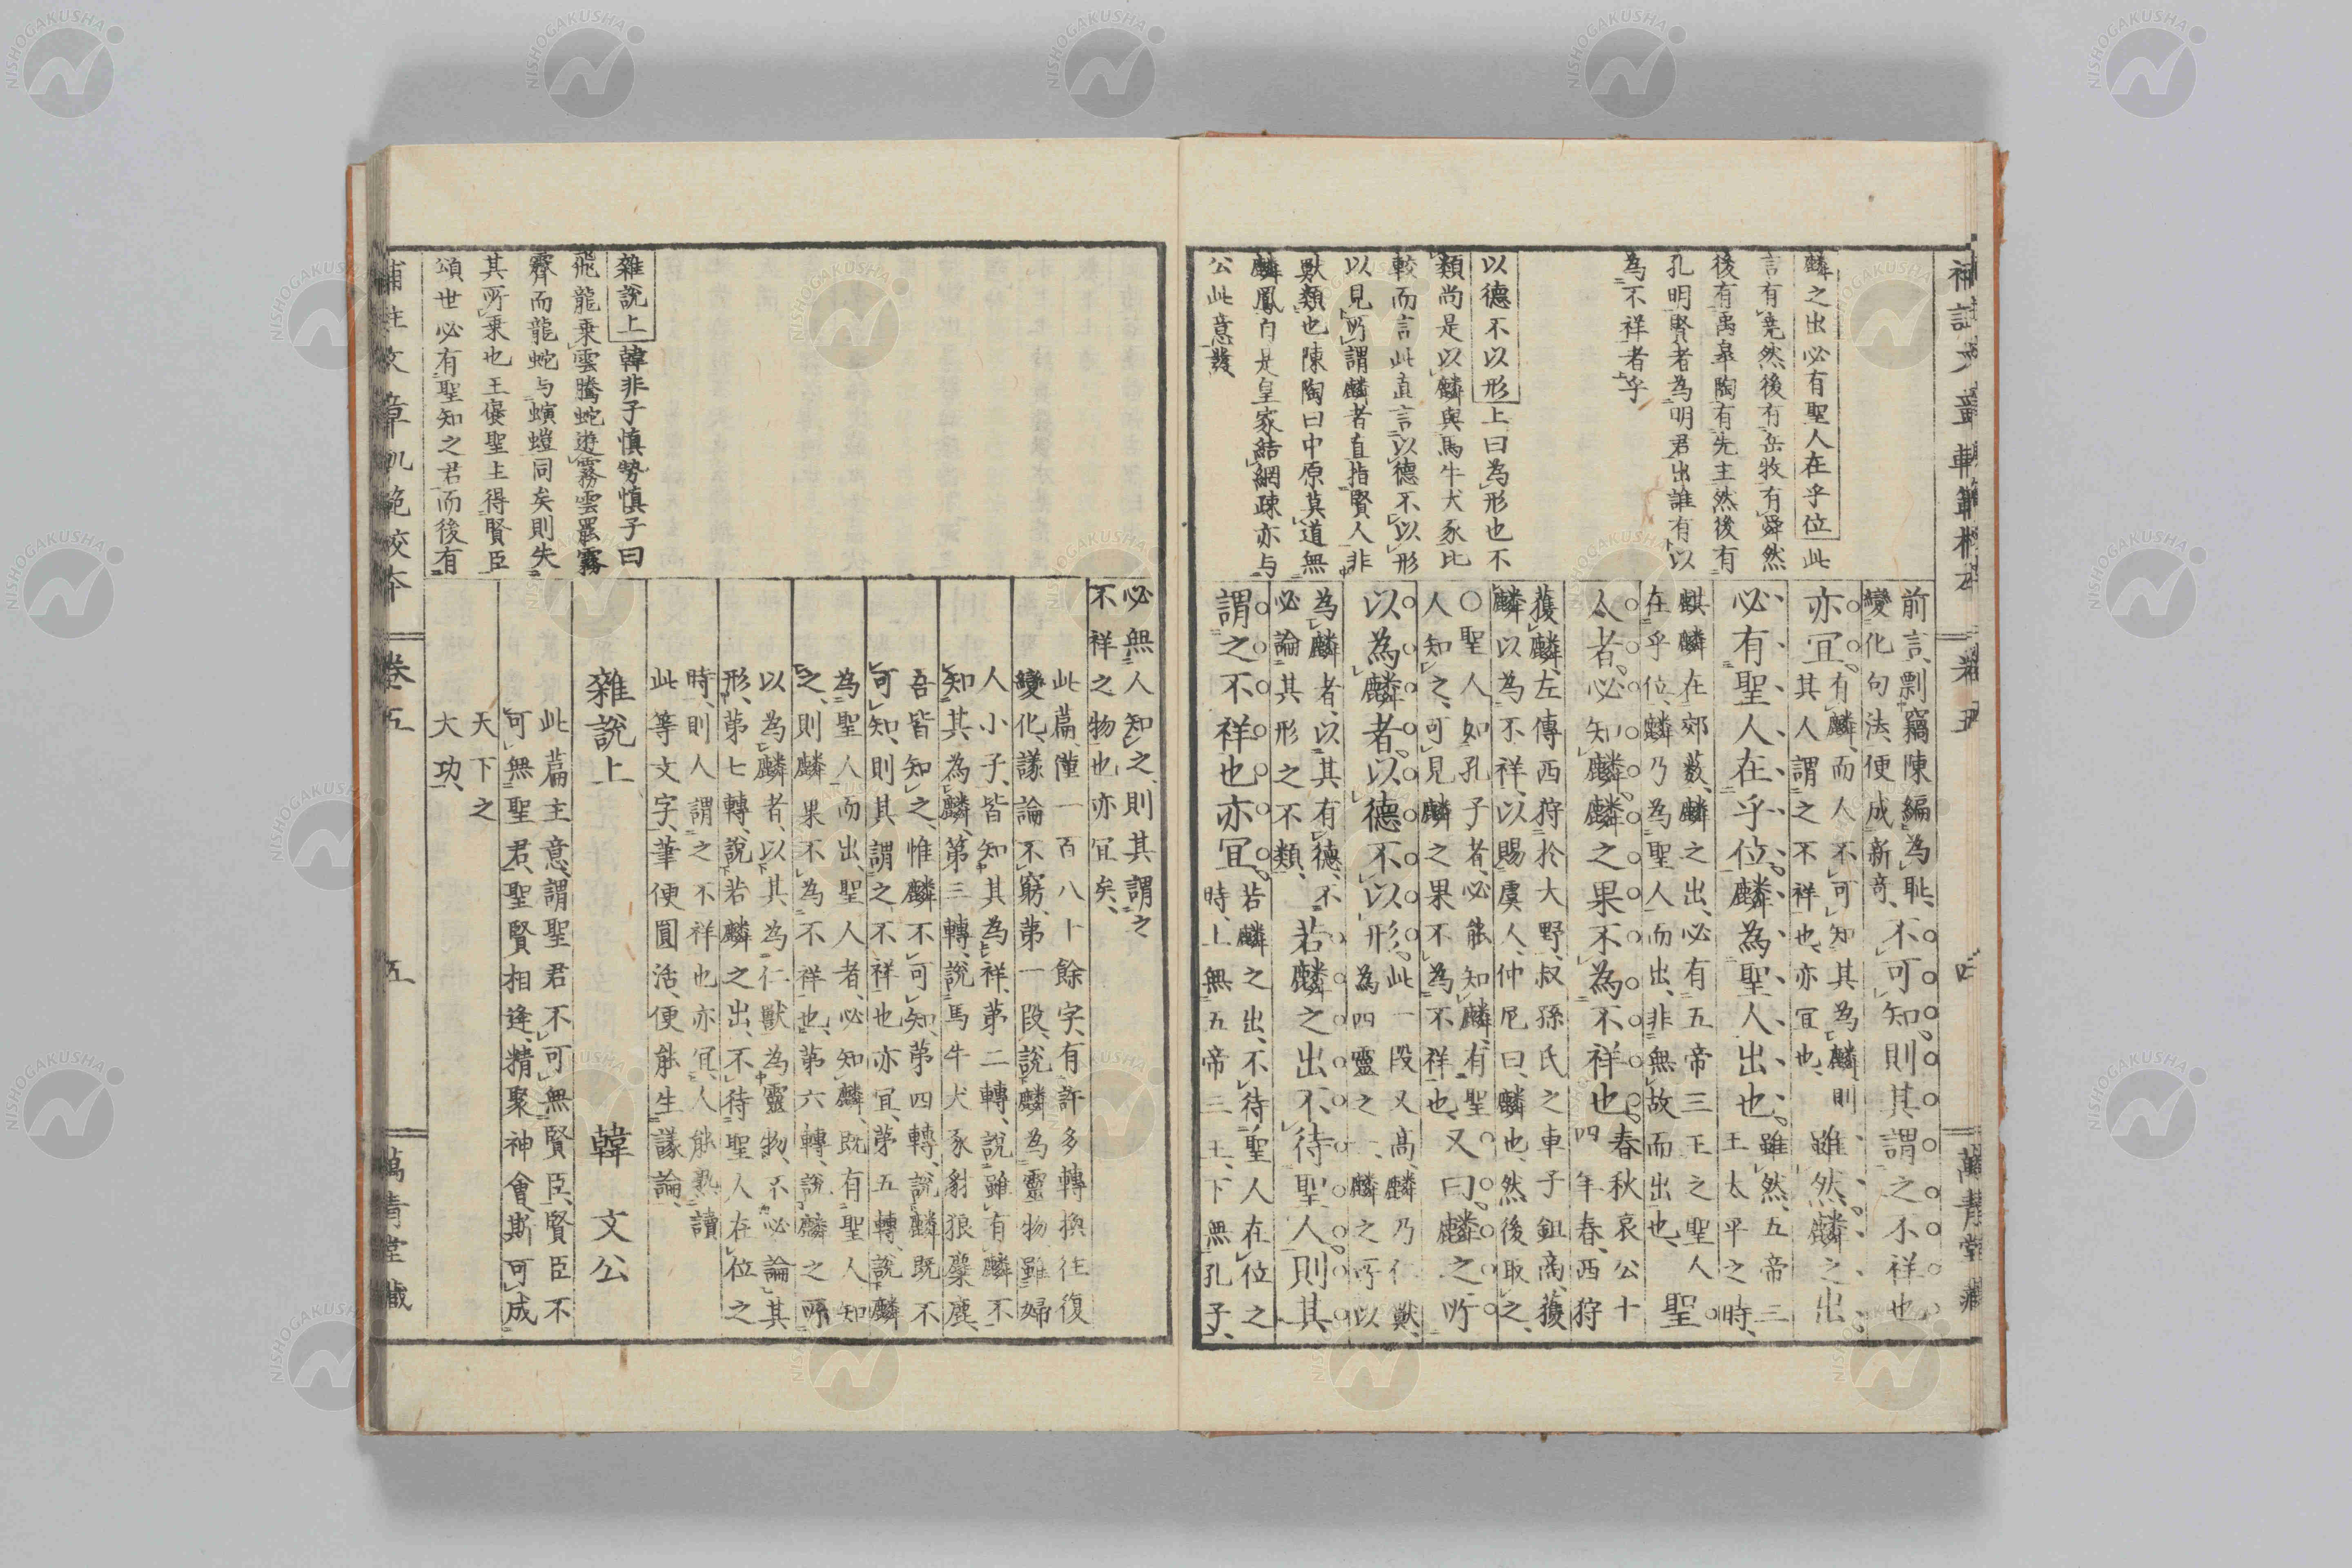 麟之出必有聖人在乎位此
言有堯然後有岳牧有舜然
後有禹皋陶有先主然後有
孔明賢者為明君出誰有以
為不祥者乎
以德不以形上曰為形也不
類尚是以麟與馬牛犬豕比
較而言此直言以德不以形
以見所謂麟者直指賢人非
獸類也陳陶曰中原莫道無
麟鳳自是皇家結網疎亦与
公此意發
前言剽竊陳編為恥不可知則其謂之不祥也
變化句法便成新奇
亦宜有麟而人不可知其為麟則雖然麟之出
其人謂之不祥也亦宜也
必有聖人在乎位麟為聖人出也雖然五帝三
王太平之時
麒麟在郊薮麟之出必有五帝三王之聖人聖
在乎位麟乃為聖人而出非無故而出也
人者必知麟麟之果不為不祥也春秋哀公十
四年春西狩
獲麟左傳西狩於大野叔孫氏之車子鉏商獲
麟以為不祥以賜虞人仲尼曰麟也然後取之
〇聖人如孔子者必能知麟有聖又曰麟之所
人知之可見麟之果不為不祥也
以為麟者以德不以形此一段又高麟乃仁獸
為四靈之一麟之所以
為麟者以其有德不若麟之出不待聖人則其
必論其形之不類
謂之不祥也亦宜若麟之出不待聖人在位之
時上無五帝三王下無孔子
卷五
萬青堂藏
必無人知之則其謂之
不祥之物也亦宜矣
此篇僅一百八十餘字有許多轉換往復
變化議論不窮第一段說麟為靈物雖婦
人小子皆知其為祥第二轉說雖有麟不
知其為麟第三轉說馬牛犬豕豺狼麋鹿
吾皆知之惟麟不可知第四轉說麟既不
可知則其謂之不祥也亦宜第五轉說麟
為聖人而出聖人者必知麟既有聖人知
之則麟果不為不祥也第六轉說麟之所
以為麟者以其為仁獸為靈物不必論其
形第七轉說若麟之出不待聖人在位之
時則人謂之不祥也亦宜人能熟讀
此等文字筆便圓活便能生議論
雜說上韓非子慎勢慎子曰
飛龍乗雲騰蛇遊霧雲罷霧
霽而龍蛇与螾螘同矣則失
其所乗也王襃聖主得賢臣
頌世必有聖知之君而後有
雜說上 韓文公
此篇主意謂聖君不可無賢臣賢臣不
可無聖君聖賢相逢精聚神會斯可成
天下之
大功
補註文章軌範校本 卷五 五 萬青堂藏